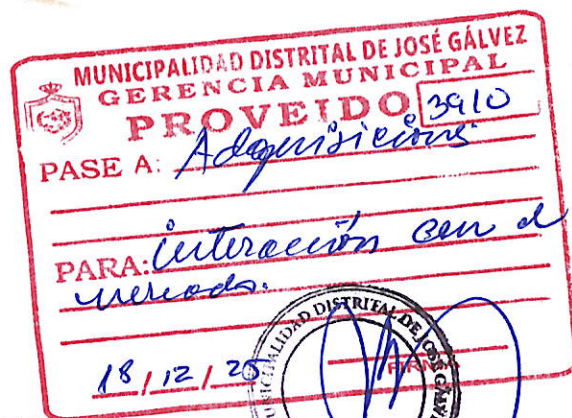 MUNICIPALIDAD DISTRITAL DE JOSÉ GÁLVEZ
GERENCIA MUNICIPAL
PROVEIDO 3910
PASE A: Adquisiciones
PARA: interacción con el
mercado.
18/12/25
FIRMA
MUNICIPALIDAD DISTRITAL DE JOSÉ GÁLVEZ